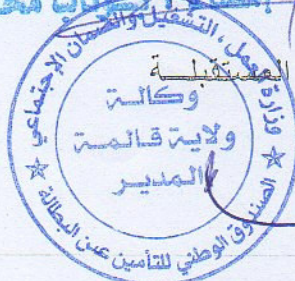 المستقبلة
وزارة العمل، التشغيل والضمان الإجتماعي
وكالة
ولاية قالمة
المدير
الصندوق الوطني للتأمين عن البطالة